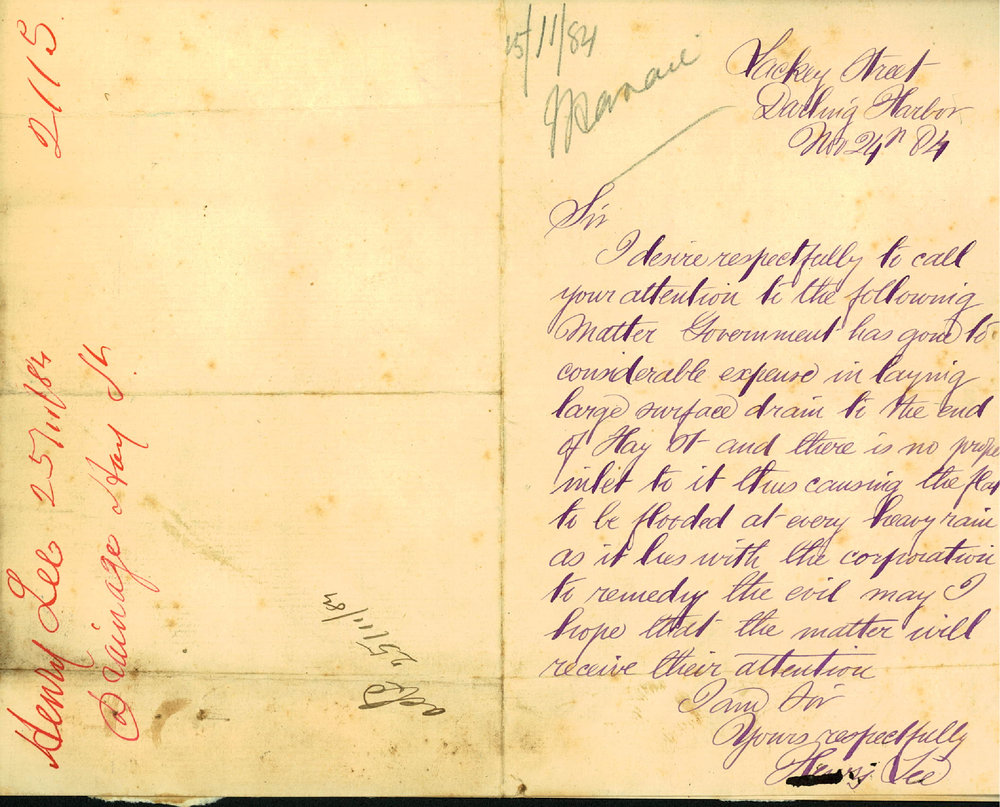 2115
Henry Lee 25/11/84
Drainage Hay St
25/11/84
25/11/84
Lackey Street
Darling Harbor
Nov 24th 84
Sir
I desire respectfully to call
your attention to the following
Matter Government has gone to
considerable expense in laying
large surface drain to the end
of Hay St and there is no prope
inlet to it thus causing the flat
to be flooded at every heavy rain
as it lies with the corporation
to remedy the evil may I
hope that the matter will
receive their attention
I am Sir
Yours respectfully
Henry Lee